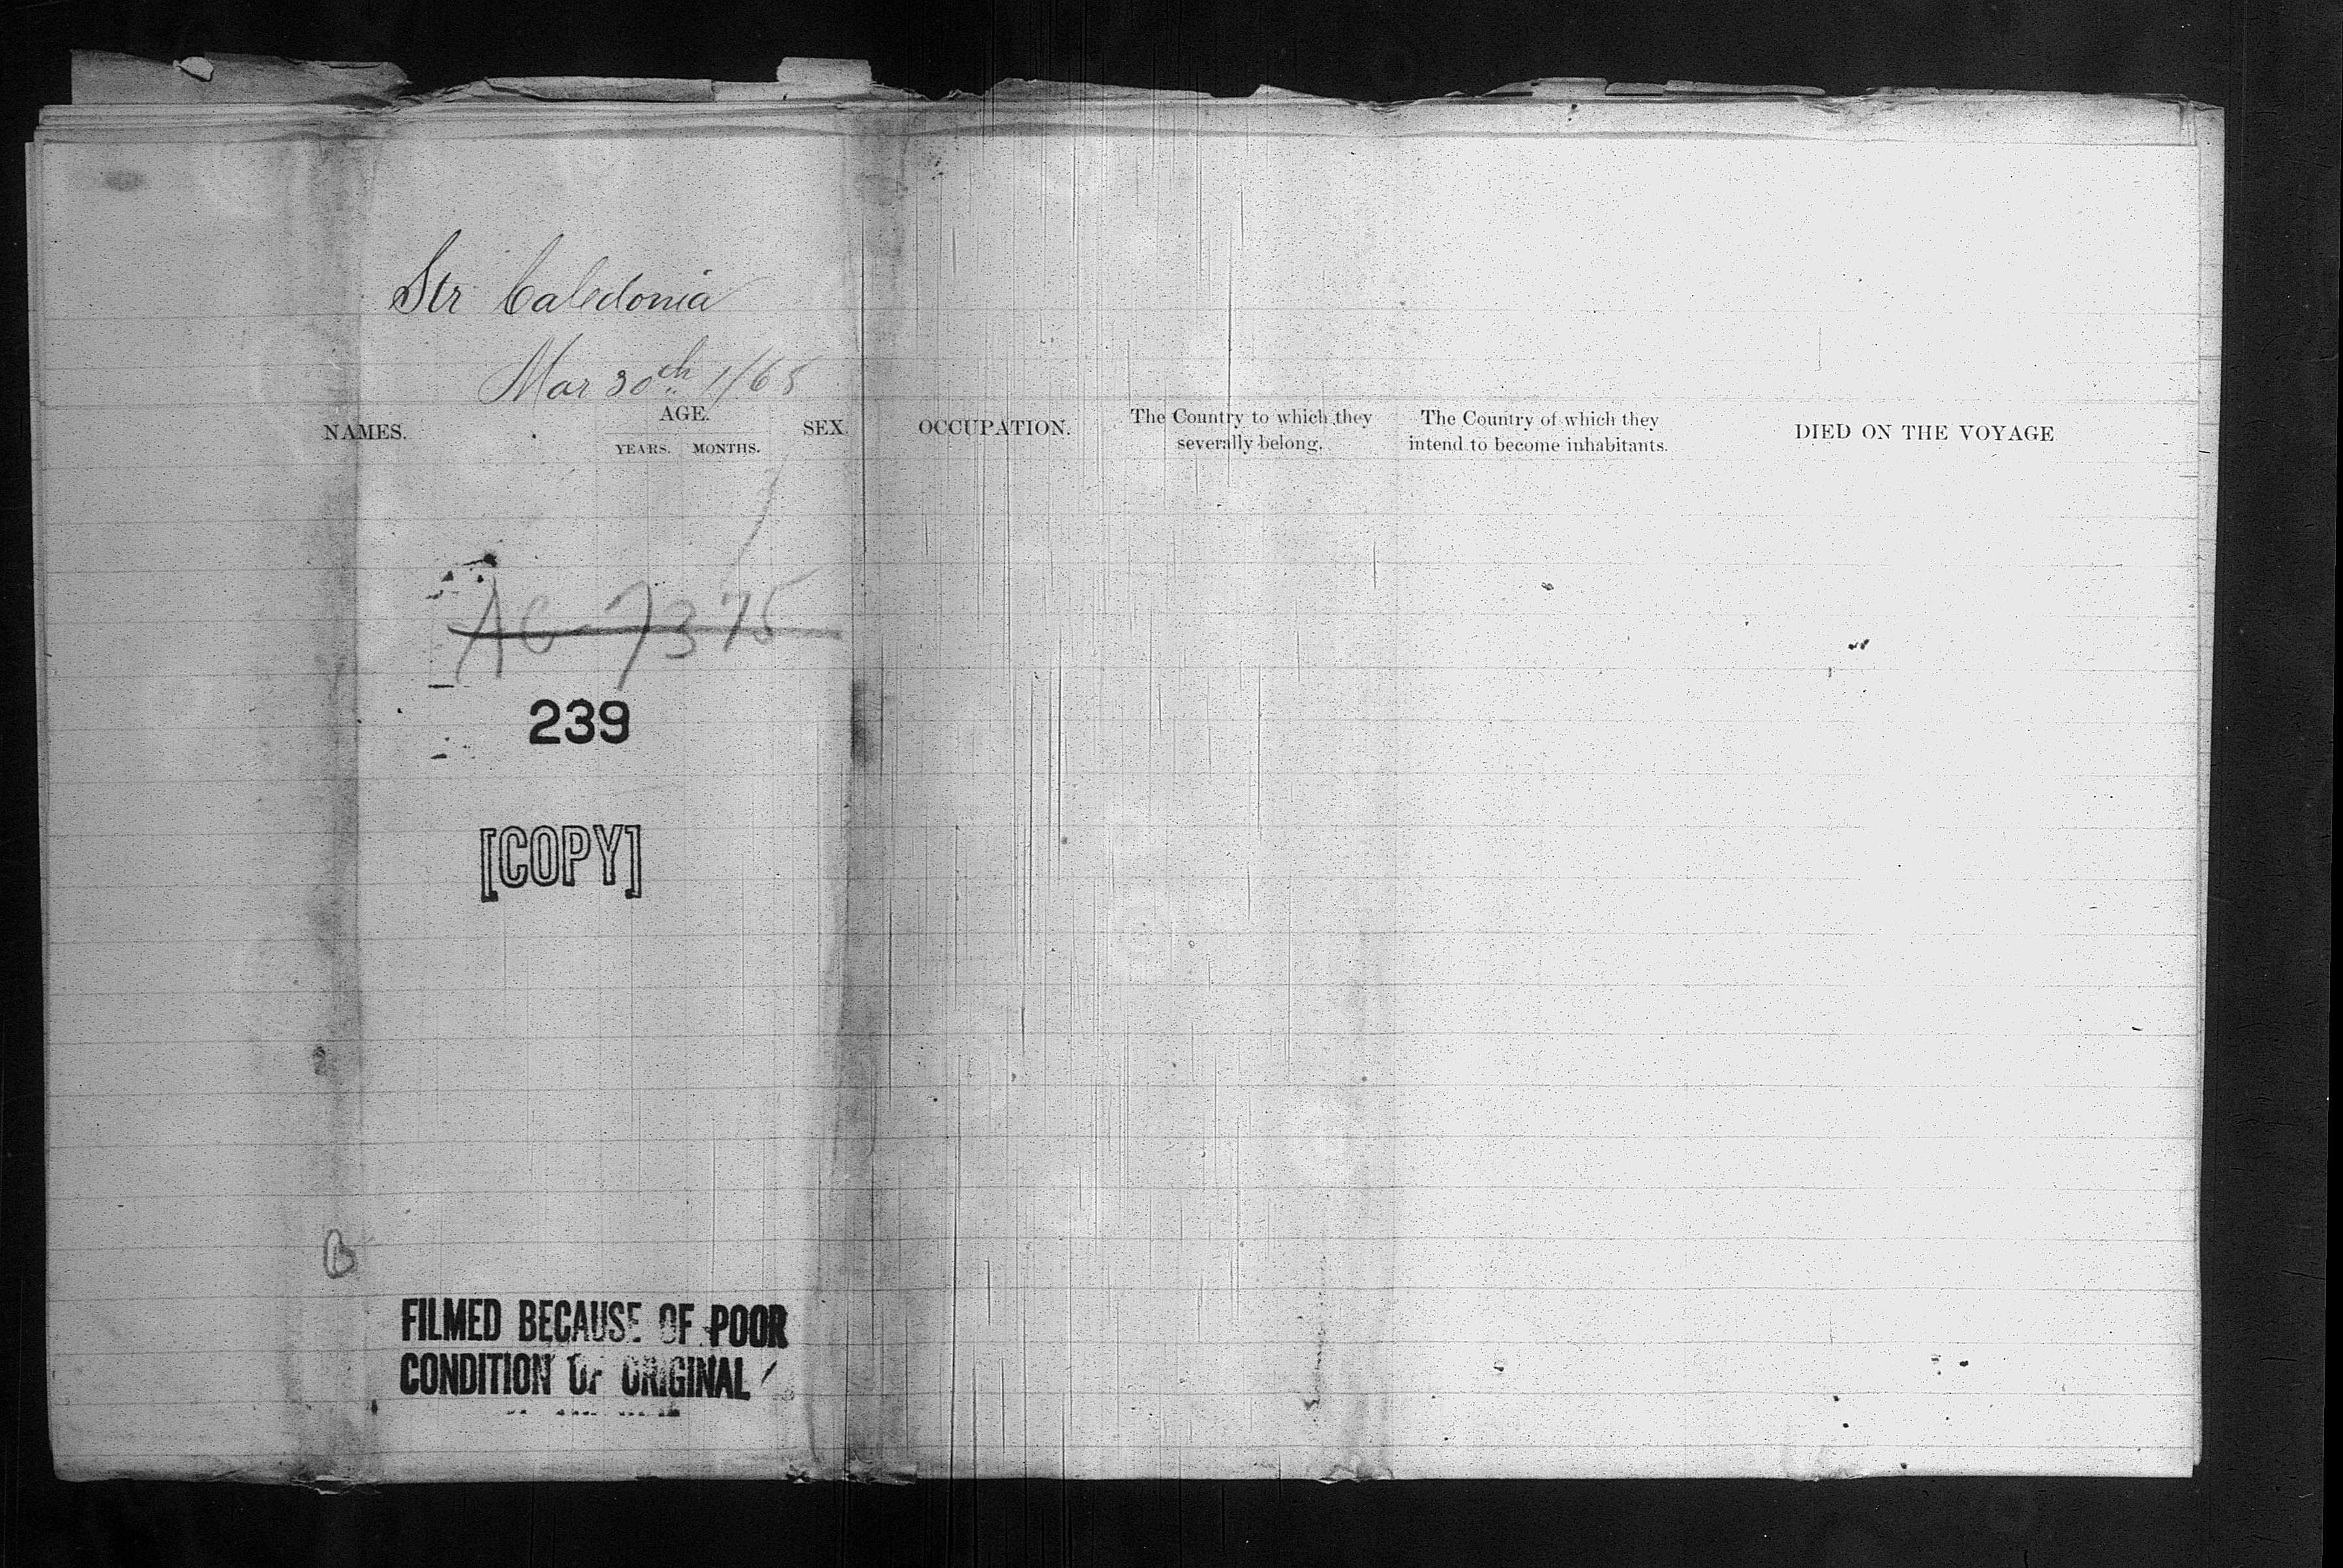 Str Caledonia
Mar 30th 1865
NAMES.
AGE.
YEARS. MONTHS.
SEX.
OCCUPATION.
The Country to which they
severally belong.
The Country of which they
intend to become inhabitants.
DIED ON THE VOYAGE
AC-7375
239
[COPY]
B
FILMED BECAUSE OF POOR
CONDITION OF ORIGINAL